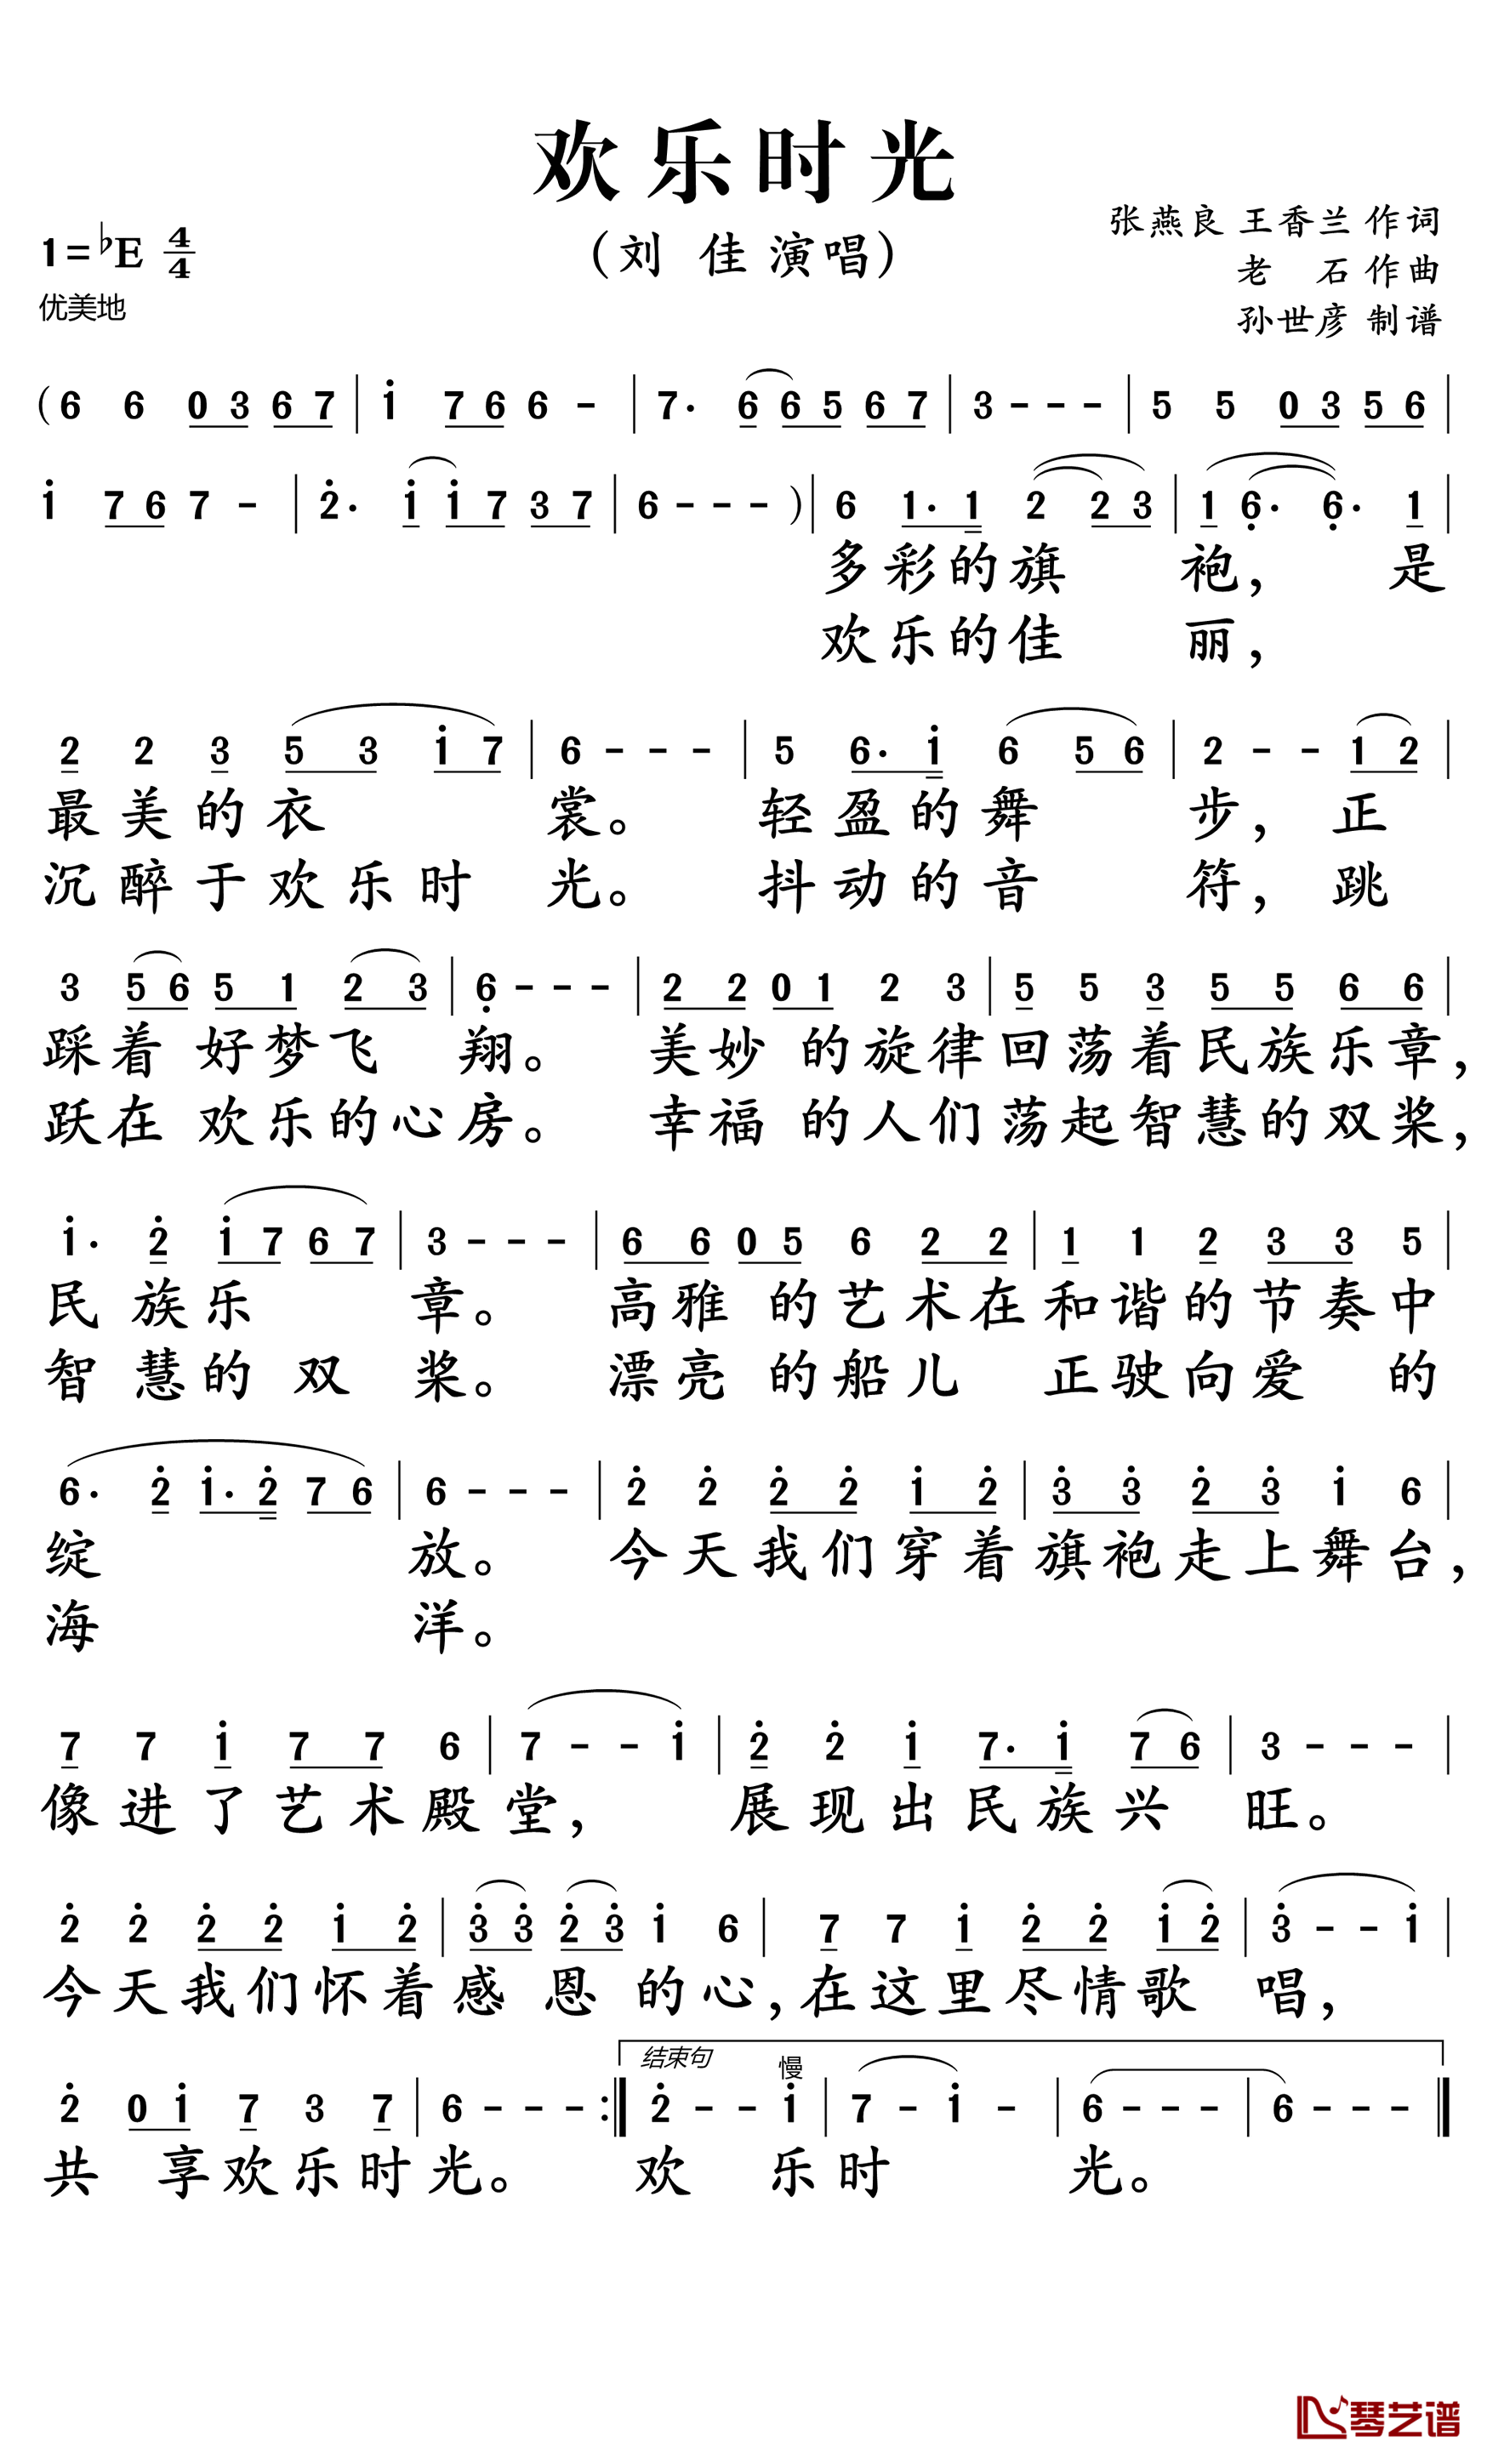 欢乐时光
1=♭E 4/4
(刘 佳演唱)
张燕良 王香兰 作词
老 石作曲
孙世彦 制谱
优美地
(6 6 0 3 6 7 | i 7 6 6 - | 7. 6 6 5 6 7 | 3 - - - | 5 5 0 3 5 6 |
i 7 6 7 - | 2. i i 7 3 7 | 6 - - - ) | 6 1. 1 2 2 3 | 1 6. 6. 1 |
多彩的旗 袍， 是
欢乐的佳 丽，
2 2 3 5 3 i 7 | 6 - - - | 5 6. i 6 5 6 | 2 - - 1 2 |
最美的衣 裳。 轻盈的舞 步， 正
沉醉于欢乐时 光。 抖动的音 符， 跳
3 5 6 5 1 2 3 | 6 - - - | 2 2 0 1 2 3 | 5 5 3 5 5 6 6 |
踩着 好梦飞 翔。 美妙 的旋律回荡着民族乐章，
跃在 欢乐的心房。 幸福 的人们荡起智慧的双桨，
i. 2 i 7 6 7 | 3 - - - | 6 6 0 5 6 2 2 | 1 1 2 3 3 5 |
民 族乐 章。 高雅 的艺术在和谐的节奏中
智 慧的 双 桨。 漂亮 的船儿 正驶向爱 的
6. 2 i. 2 7 6 | 6 - - - | 2 2 2 2 i 2 | 3 3 2 3 i 6 |
绽 放。 今天我们穿着旗袍走上舞台，
海 洋。
7 7 i 7 7 6 | 7 - - i | 2 2 i 7. i 7 6 | 3 - - - |
像进了艺术殿堂， 展现出民族兴 旺。
2 2 2 2 i 2 | 3 3 2 3 i 6 | 7 7 i 2 2 i 2 | 3 - - i |
今天我们怀着感 恩 的心，在这里尽情歌 唱，
结束句 慢
2 0 i 7 3 7 | 6 - - - :| 2 - - i | 7 - i - | 6 - - - | 6 - - - |
共 享欢乐时光。 欢 乐时 光。
琴艺谱